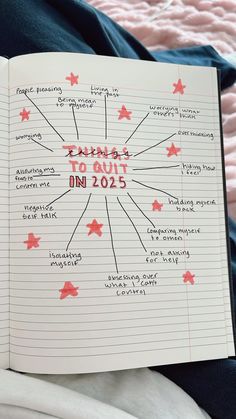 People pleasing
Living in
the past
Being mean
to myself
Worrying what
others think
Worrying
overthinking
THINGS
TO QUIT
IN 2025
hiding how
I feel
allowing my
fears to
control me
holding myself
back
negative
self talk
comparing myself
to others
isolating
myself
not asking
for help
obsessing over
what I can't
control